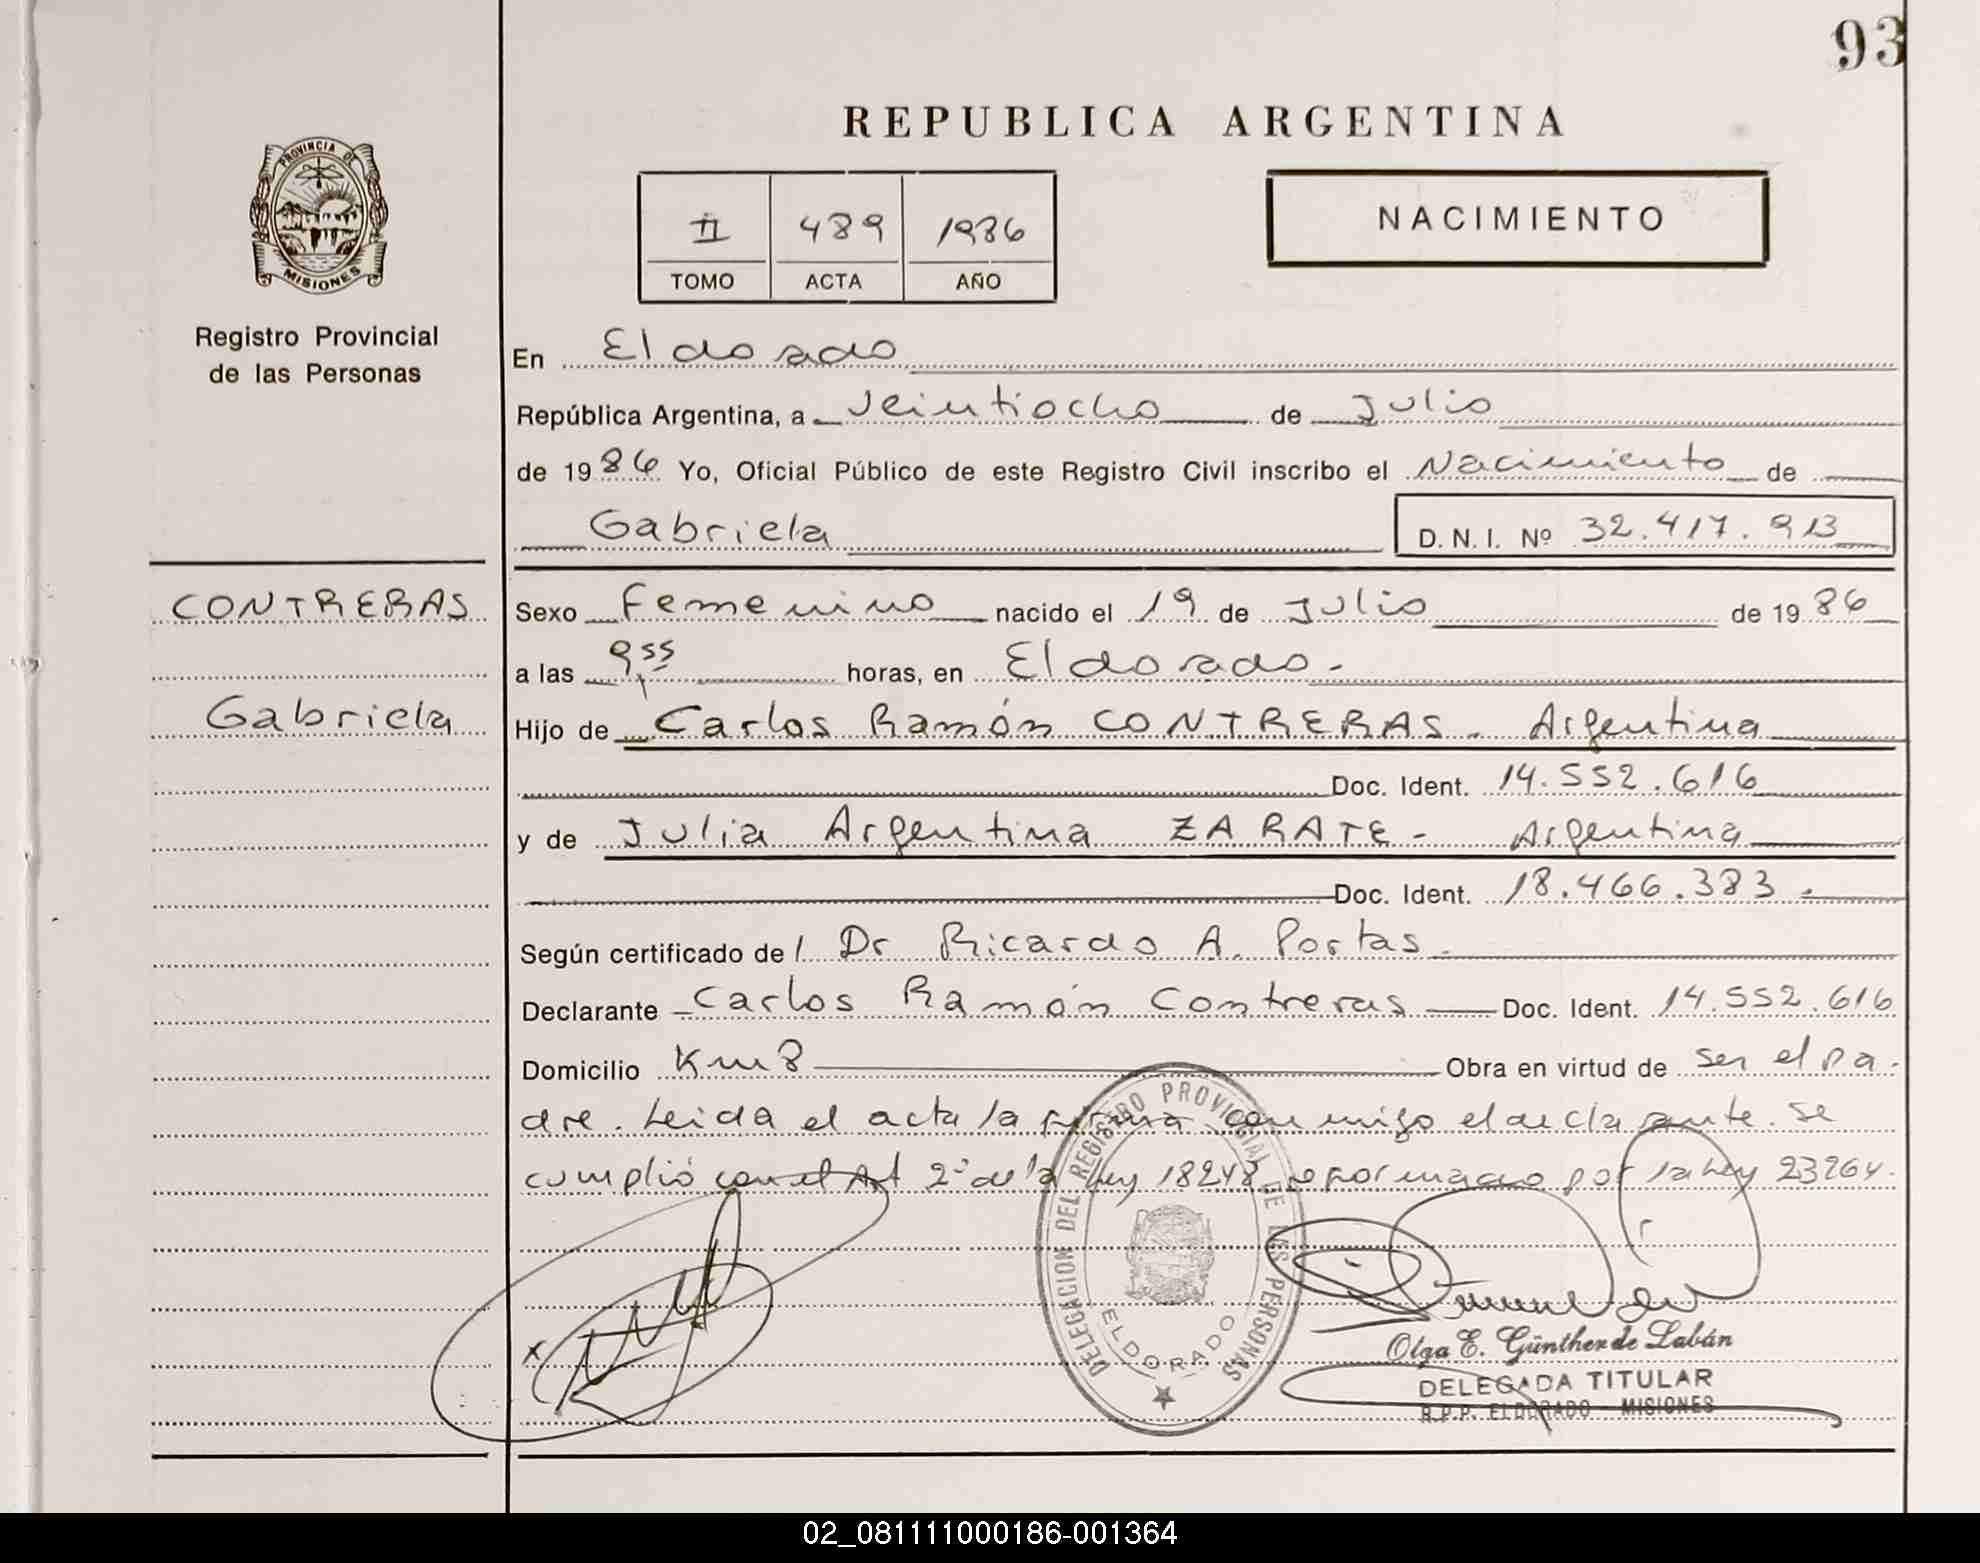 93
REPUBLICA ARGENTINA
PROVINCIA DE
MISIONES
Registro Provincial
de las Personas
II 489 1986
TOMO ACTA AÑO
NACIMIENTO
En Eldorado
República Argentina, a Veintiocho de Julio
de 1986 Yo, Oficial Público de este Registro Civil inscribo el Nacimiento de
Gabriela D.N.I. Nº 32.417.913
CONTRERAS
Gabriela
Sexo Femenino nacido el 19 de Julio de 1986
a las 9 55 horas, en Eldorado.
Hijo de Carlos Ramón CONTRERAS. Argentina
Doc. Ident. 14.552.616
y de Julia Argentina ZARATE - Argentina
Doc. Ident. 18.466.383.
Según certificado del Dr Ricardo A. Portas.
Declarante Carlos Ramón Contreras Doc. Ident. 14.552.616
Domicilio Km 8 Obra en virtud de ser el pa-
dre. Leida el acta la firma conmigo el declarante. Se
cumplió con el Art 2º de la Ley 18248 reformado por la Ley 23264.
DELEGACION DEL REGISTRO PROVINCIAL DE LAS PERSONAS
ELDORADO
Olga E. Günther de Labán
DELEGADA TITULAR
R.P.P. ELDORADO - MISIONES
02_081111000186-001364